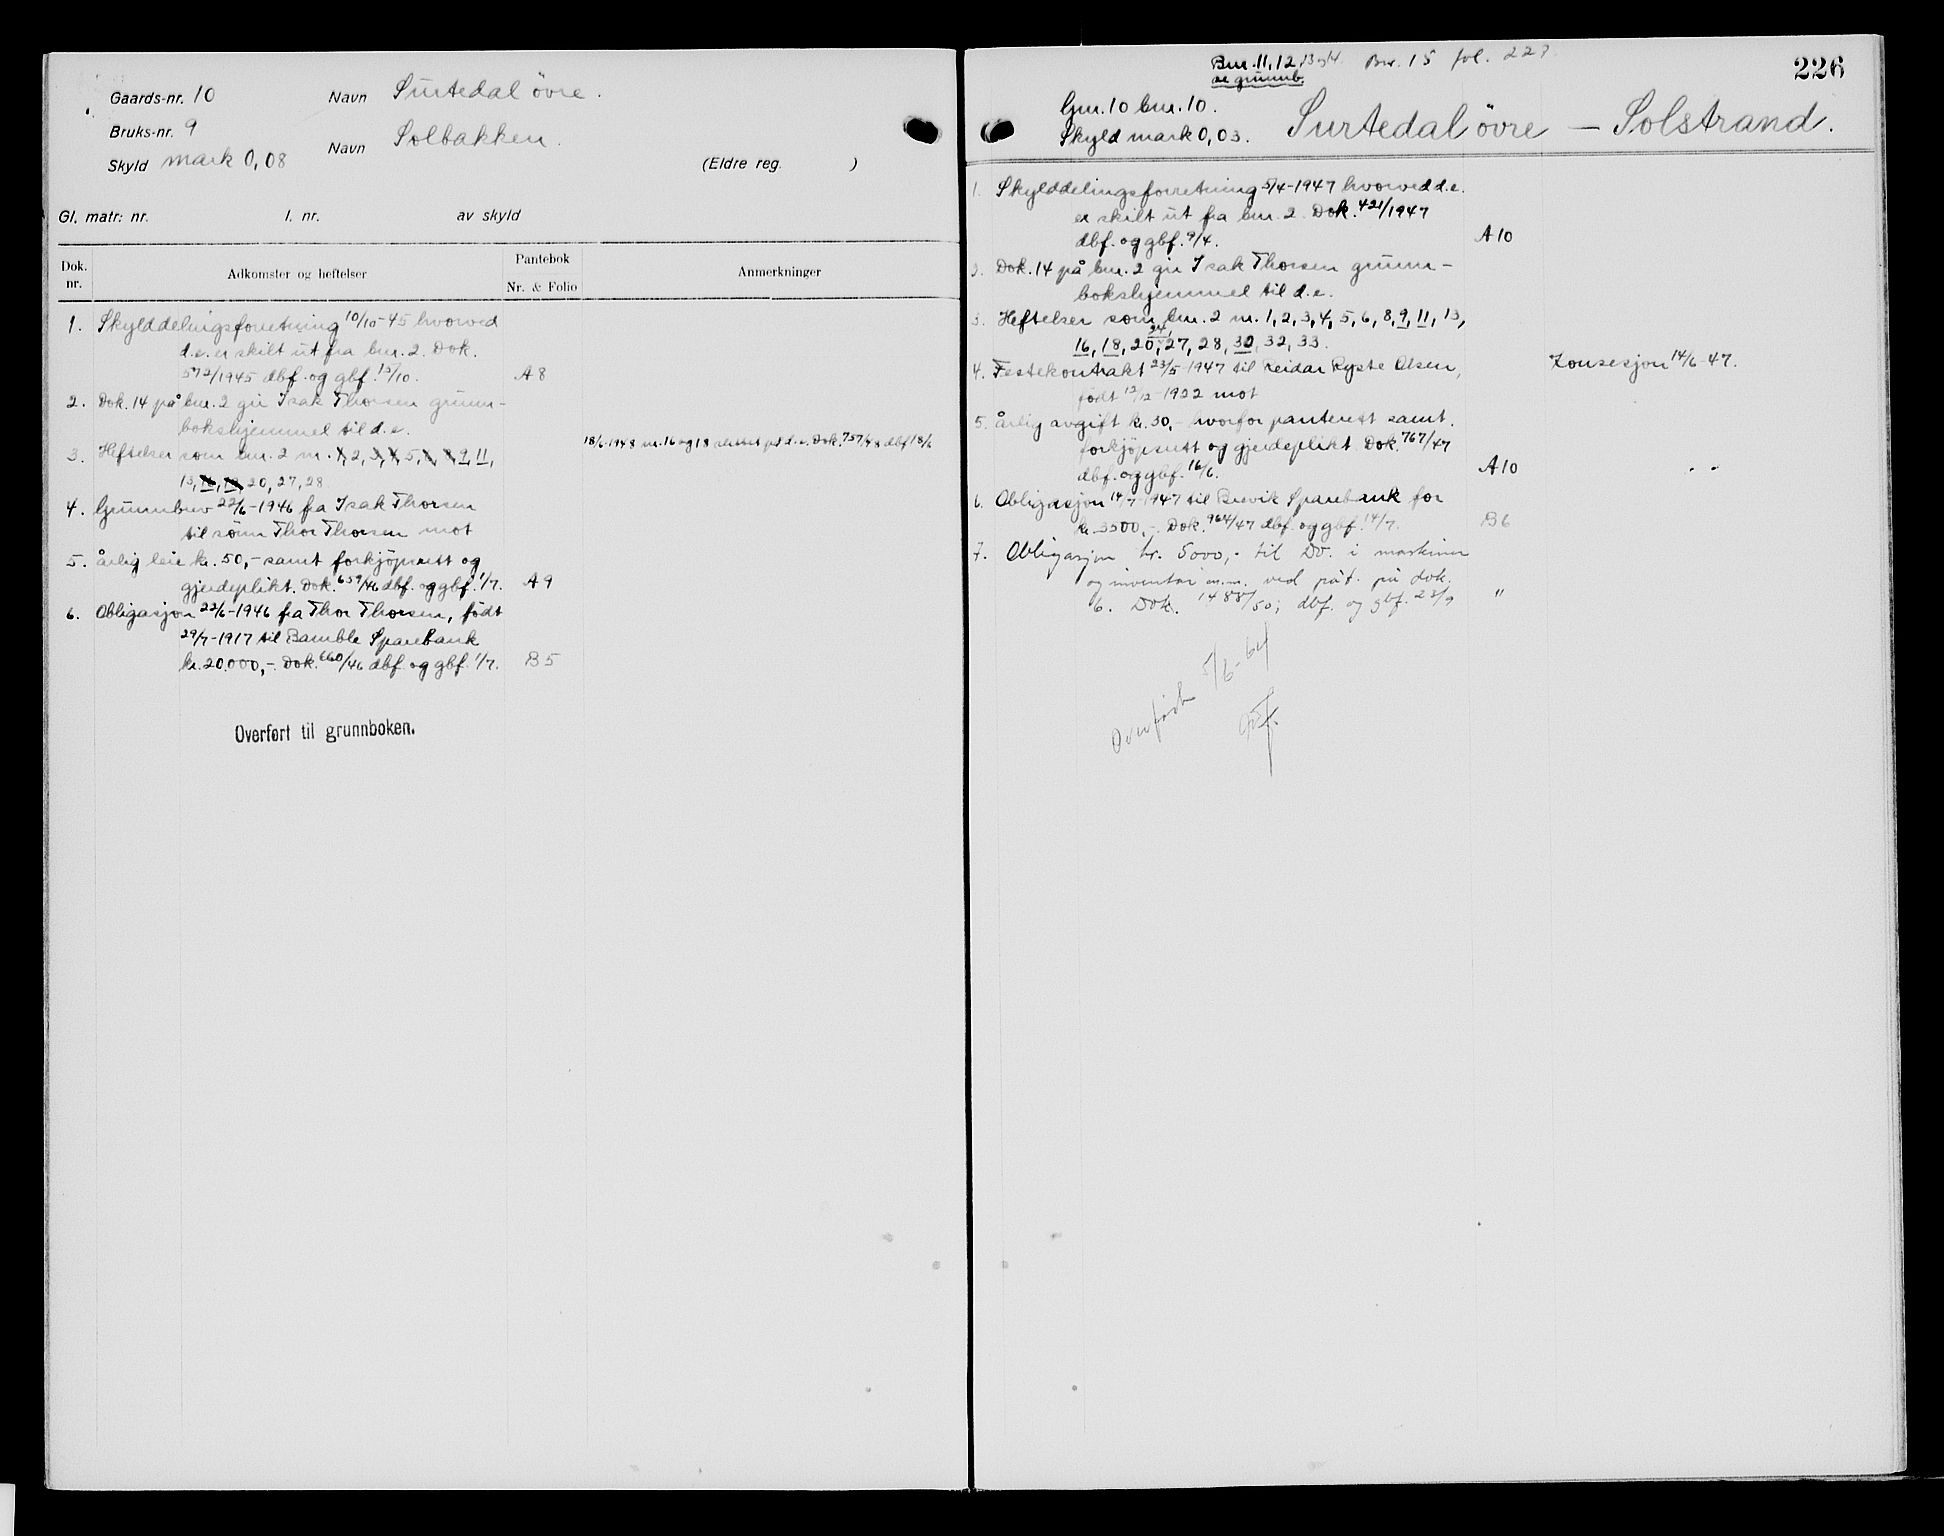 Gaards-nr. 10 Navn Surtedal övre.
Bruks-nr. 9 Navn Solbakken.
Skyld mark 0,08 (Eldre reg. )
Gl. matr: nr. l. nr. av skyld
Dok. nr. Adkomster og heftelser Pantebok Nr. & Folio Anmerkninger
1. Skylddelingsforretning 10/10-45 hvorved
d.e. er skilt ut fra bnr. 2. Dok.
572/1945 dbf. og gbf. 15/10. A 8
2. Dok. 14 på bnr. 2 gir Isak Thorsen grunn-
bokshjemmel til d.e.
18/6-1948 nr. 16 og 18 slettet på d.e. Dok. 757/48 dbf 18/6
3. Heftelser som bnr. 2 nr. 1, 2, 3, 4, 5, 6, 8, 9, 11,
13, 16, 18, 20, 27, 28
4. Grunnbrev 22/6-1946 fra Isak Thorsen
til sönn Thor Thorsen mot
5. årlig leie kr. 50,- samt forkjöpsrett og
gjerdeplikt. Dok. 659/46 dbf. og gbf. 1/7. A 9
6. Obligasjon 22/6-1946 fra Thor Thorsen, födt
29/7-1917 til Bamble Sparebank
kr. 20.000,-. Dok. 660/46 dbf. og gbf. 1/7. B 5
Overført til grunnboken.
Bnr. 11, 12, 13 og 14 Bnr. 15 fol. 227.
se grunnb.
226
Gnr. 10 bnr. 10.
Skyld mark 0,03. Surtedal övre – Solstrand.
1. Skylddelingsforretning 5/4-1947 hvorved d.e.
er skilt ut fra bnr. 2. Dok. 421/1947
dbf. og gbf. 9/4. A 10
2. Dok. 14 på bnr. 2 gir Isak Thorsen grunn-
bokshjemmel til d.e.
3. Heftelser som bnr. 2 nr. 1, 2, 3, 4, 5, 6, 8, 9, 11, 13,
24,
16, 18, 20, 27, 28, 30, 32, 33.
4. Festekontrakt 23/5-1947 til Reidar Ryste Olsen, Konsesjon 14/6-47.
födt 12/12-1922 mot
5. årlig avgift kr. 30,- hvorfor panterett samt
forkjöpsrett og gjerdeplikt Dok. 767/47
dbf. og gbf. 16/6. A 10 - -
6. Obligasjon 14/7-1947 til Brevik Sparebank for
kr. 3500,-. Dok. 964/47 dbf. og gbf. 14/7. B 6
7. Obligasjon kr. 5000,- til Do. i maskiner
og inventar m.m. ved påt. på dok.
6. Dok. 1488/50; dbf. og gbf. 23/9 "
Overført 5/6-64